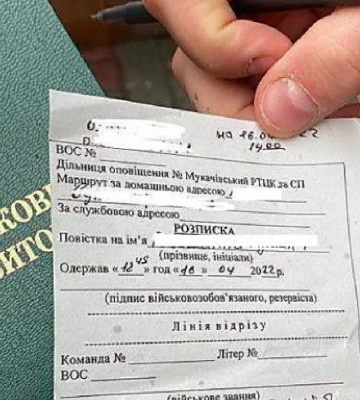 на 16.04
14.00
ВОС №
Дільниця оповіщення № Мукачівський РТЦК та СП
Маршрут за домашньою адресою
За службовою адресою
РОЗПИСКА
Повістка на ім'я
(прізвище, ініціали)
Одержав «12 45» год «16» 04 2022р.
(підпис військовозобов'язаного, резервіста)
Лінія відрізу
Команда № Літер №
ВОС
(військове звання)